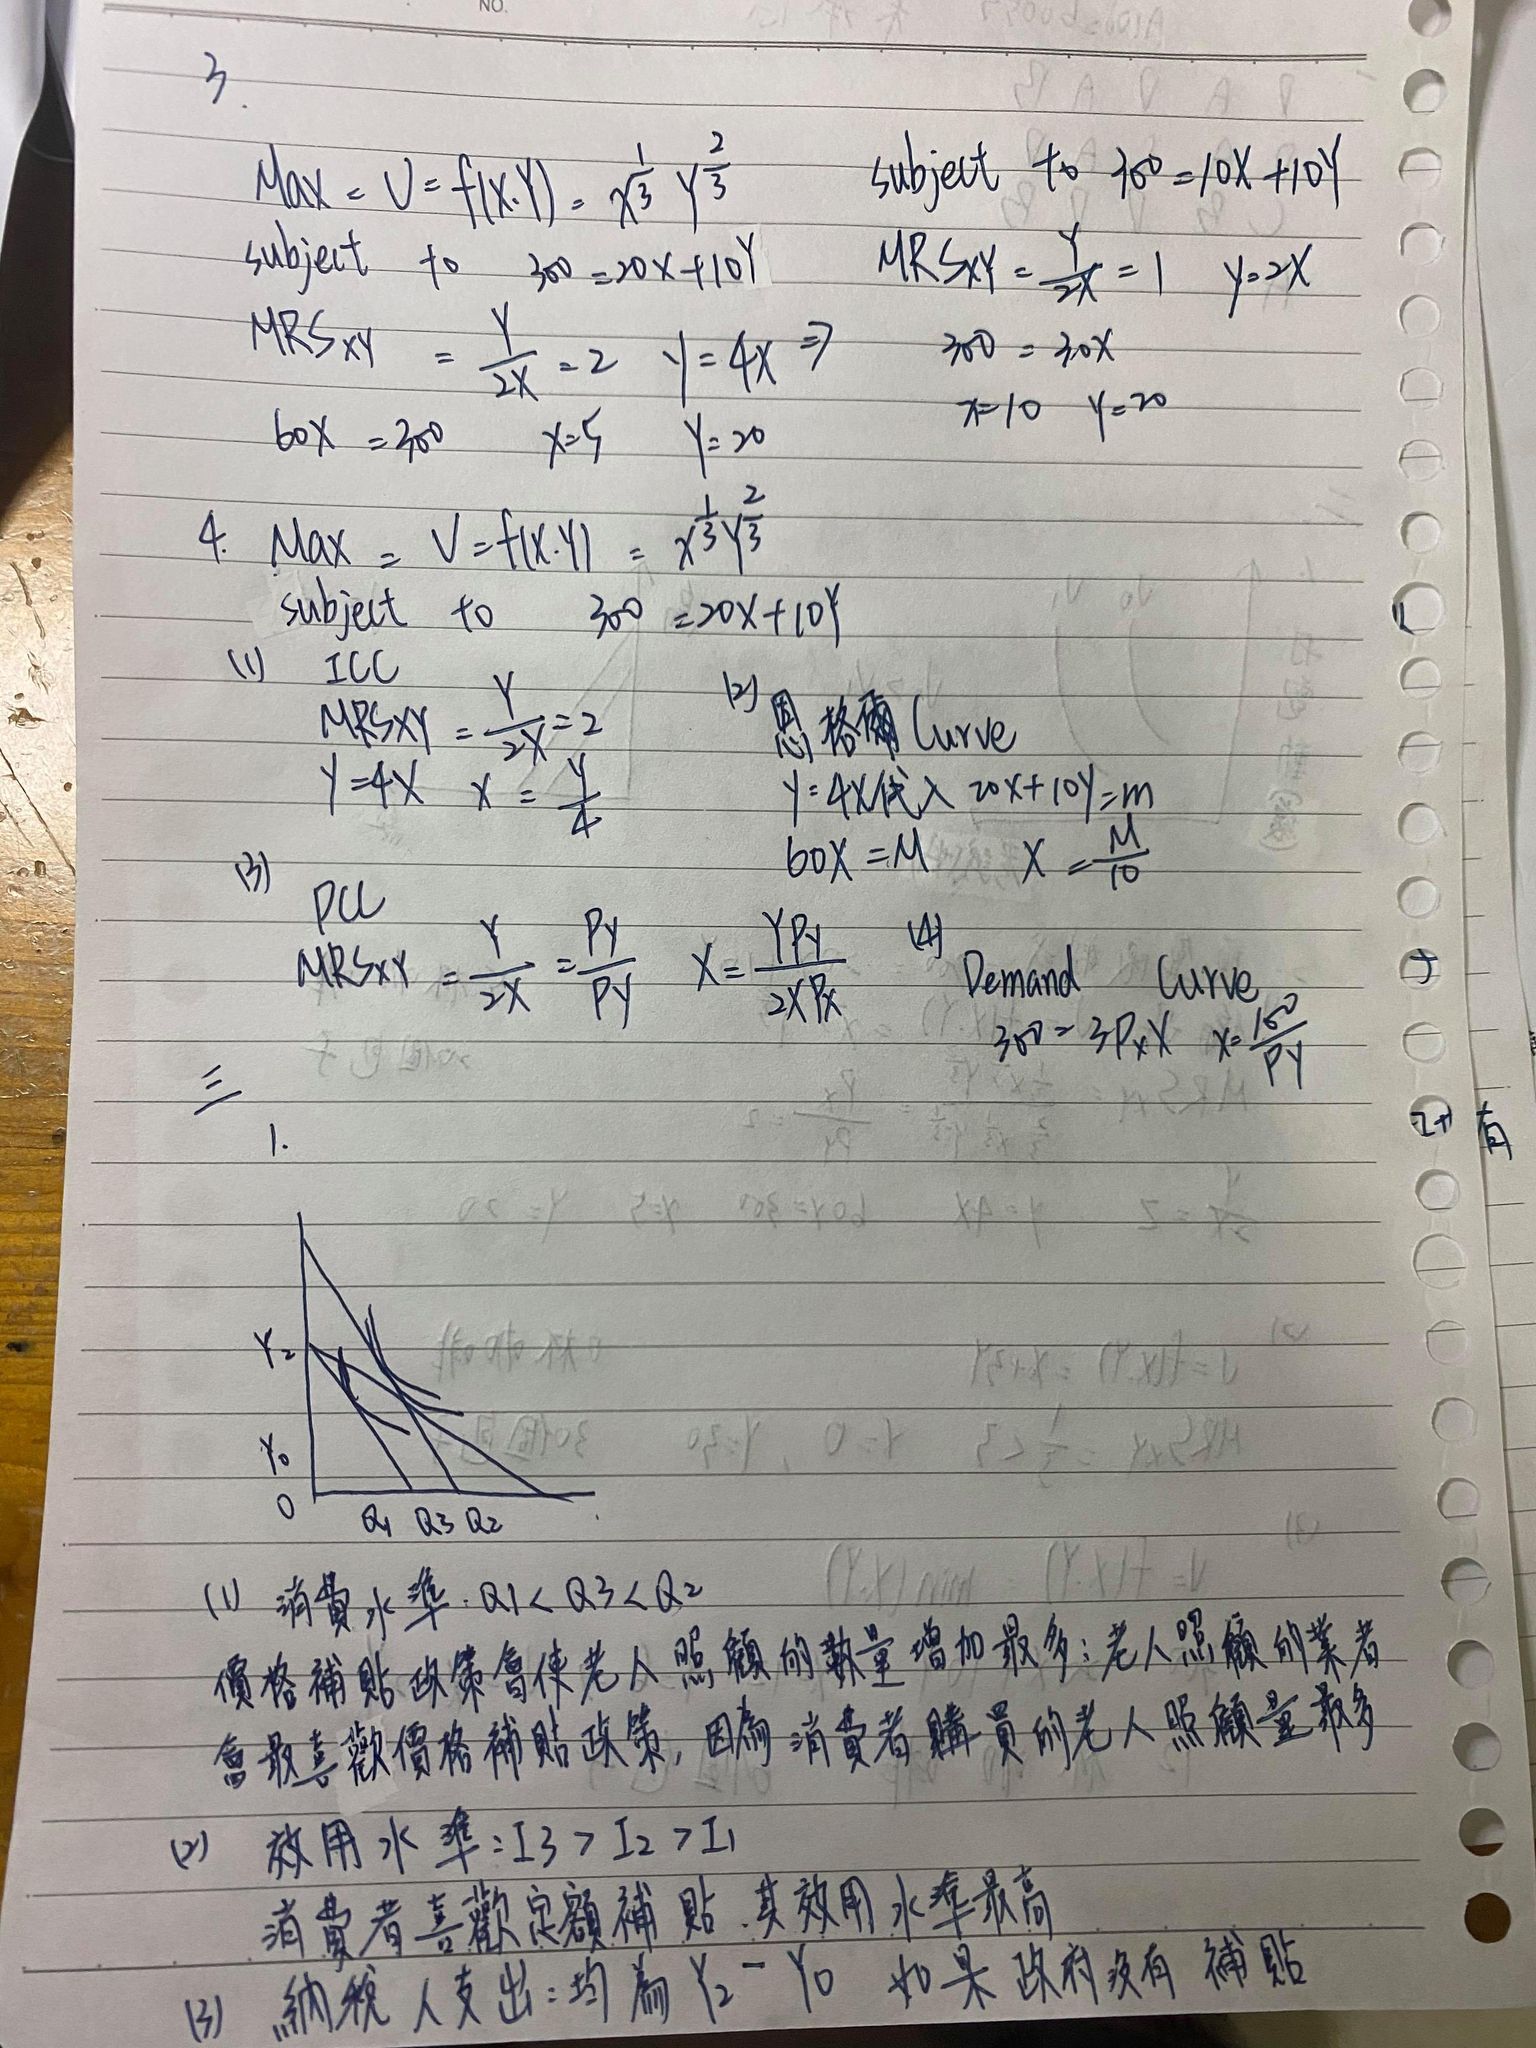 NO.
3.
Max = U = f(X.Y) = x^{1/3} Y^{2/3}
subject to 300 = 20X+10Y
MRSxY = Y/2X = 2 Y = 4X ⇒
60X = 300 X=5 Y=20
subject to 300 = 10X+10Y
MRSxY = Y/2X = 1 Y=2X
300 = 30X
x=10 Y=20
4. Max = U = f(X.Y) = x^{1/3} Y^{2/3}
subject to 300 = 20X+10Y
(1) ICC
MRSXY = Y/2X = 2
Y=4X X = Y/4
(2) 恩格爾 Curve
Y=4X代入 20X+10Y=m
60X = M X = M/10
(3) PCC
MRSXY = Y/2X = PY/PY X = YPY/2XPX
(4) Demand Curve
300 = 3PxX x = 100/PY
三
1.
Y2
Y0
0
Q1 Q3 Q2
(1) 消費水準: Q1 < Q3 < Q2
價格補貼政策會使老人照顧的數量增加最多; 老人照顧的業者
會最喜歡價格補貼政策, 因為消費者購買的老人照顧量最多
(2) 效用水準: I3 > I2 > I1
消費者喜歡定額補貼.其效用水準最高
(3) 納稅人支出: 均為 Y2 - Y0 如果政府沒有補貼
有